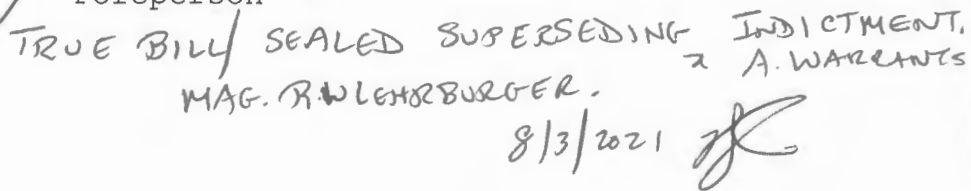 Foreperson
TRUE BILL/ SEALED SUPERSEDING INDICTMENT.
A. WARRANTS
MAG. R.W LEHRBURGER.
8/3/2021